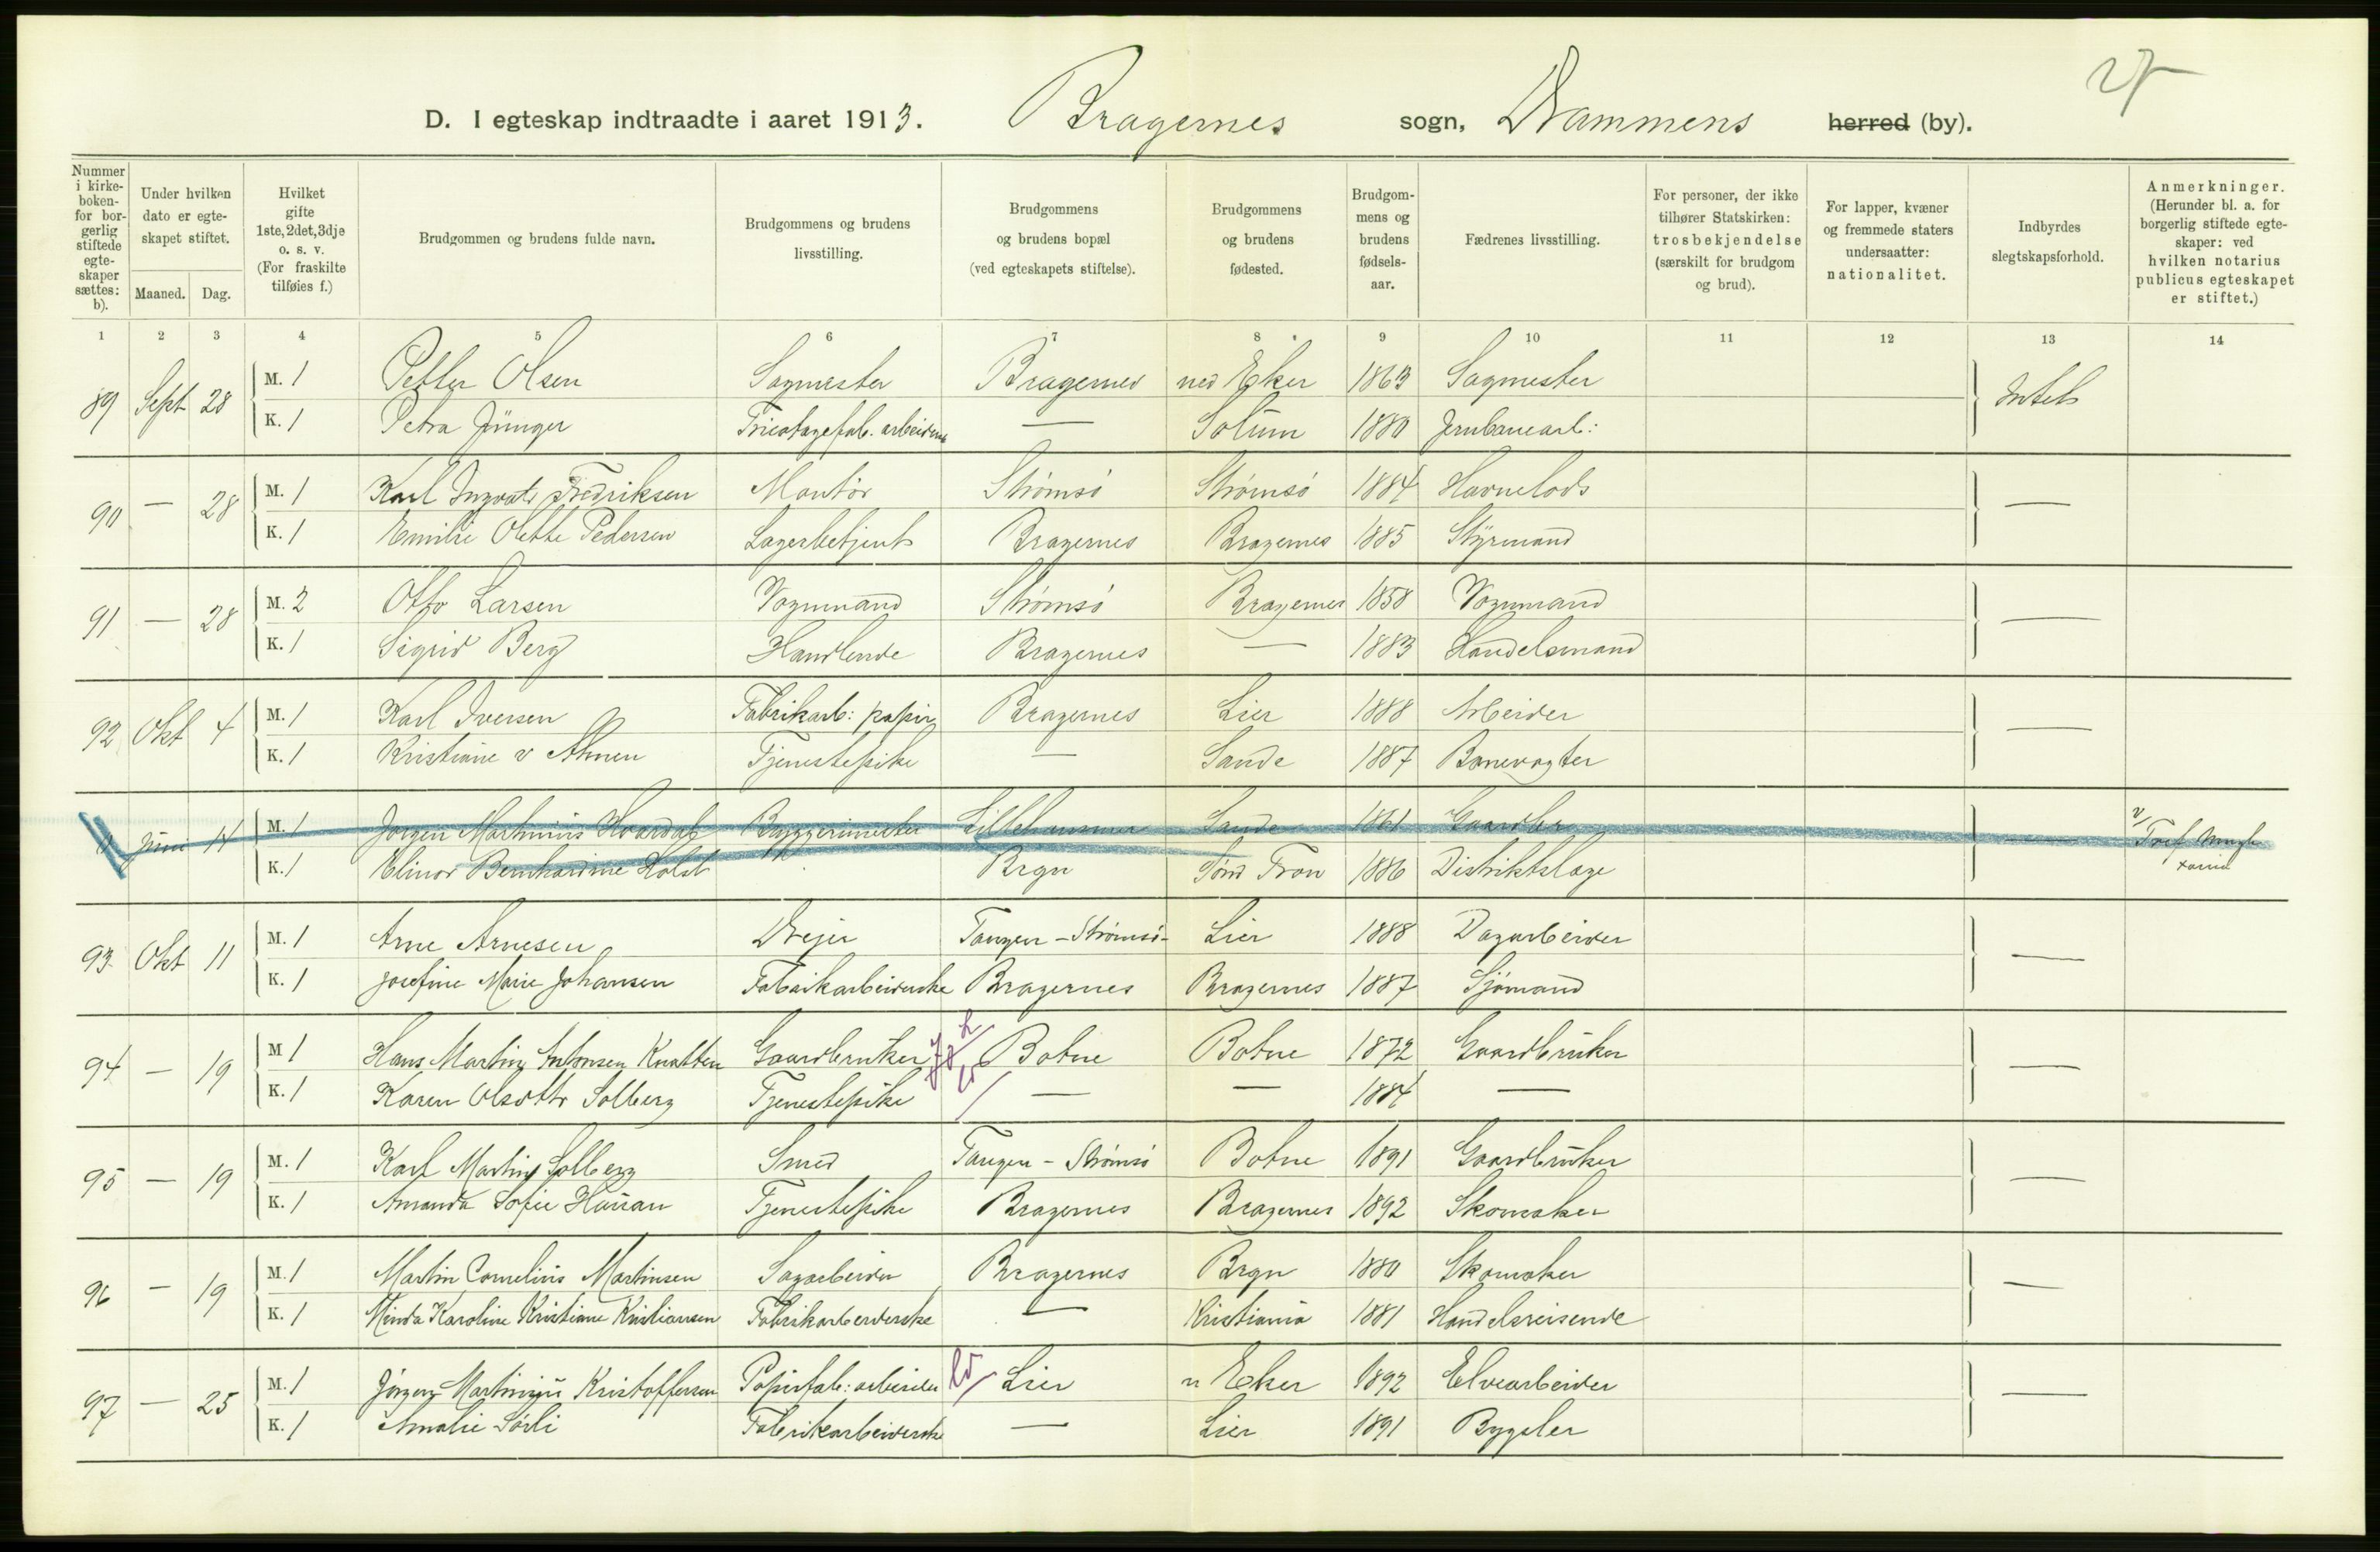 D. I egteskap indtraadte i aaret 1913. Bragernes sogn, Drammens herred (by).
Nummer i kirke-boken- for bor-gerlig stiftede egte-skaper sættes: b).
Under hvilken dato er egte-skapet stiftet.
Maaned. Dag.
Hvilket gifte 1ste, 2det, 3dje o. s. v. (For fraskilte tilføies f.)
Brudgommen og brudens fulde navn.
Brudgommens og brudens livsstilling.
Brudgommens og brudens bopæl (ved egteskapets stiftelse).
Brudgommens og brudens fødested.
Brudgom-mens og brudens fødsels-aar.
Fædrenes livsstilling.
For personer, der ikke tilhører Statskirken: trosbekjendelse (særskilt for brudgom og brud).
For lapper, kvæner og fremmede staters undersaatter: nationalitet.
Indbyrdes slegtskapsforhold.
Anmerkninger. (Herunder bl. a. for borgerlig stiftede egte-skaper: ved hvilken notarius publicus egteskapet er stiftet.)
1 2 3 4 5 6 7 8 9 10 11 12 13 14
89 Sept 28 M. 1 Petter Olsen Sagmester Bragernes ned Eker 1863 Sagmester Intet
K. 1 Petra Jünger Tricotagefab. arbeiderske — Solum 1880 Jernbanearb:
90 — 28 M. 1 Karl Ingvald Fredriksen Montør Strømsø Strømsø 1884 Havnelods —
K. 1 Emilie Olette Pedersen Lagerbetjent Bragernes Bragernes 1885 Styrmand
91 — 28 M. 2 Otto Larsen Vognmand Strømsø Bragernes 1858 Vognmand —
K. 1 Sigrid Berg Handlende Bragernes — 1883 Handelsmand
92 Okt 4 M. 1 Karl Iversen Fabrikarb: papir Bragernes Lier 1888 Arbeider —
K. 1 Kristiane v Ahnen Tjenestepike — Sande 1887 Banevogter
Juni 14 M. 1 Jørgen Martinius Bryggerimester Lillehammer Sande 1861 Gaardbr —
K. 1 Elinor Bernhardine Holst Brgn Sønd Fron 1886 Distriktslæge
93 Okt 11 M. 1 Arne Arnesen Dreier Tangen - Strømsø - Lier 1888 Dagarbeider —
K. 1 Josefine Marie Johansen Fabrikarbeiderske Bragernes Bragernes 1887 Sjømand
94 — 19 M 1 Hans Martin Antonsen Knatten Gaardbruker Botne Botne 1872 Gaardbruker —
K. 1 Karen Olsdttr Solberg Tjenestepike — — 1884 —
95 — 19 M. 1 Karl Martin Solberg Smed Tangen - Strømsø Botne 1891 Gaardbruker —
K. 1 Amanda Sofie Tjenestepike Bragernes Bragernes 1892 Skomaker
96 — 19 M. 1 Martin Cornelius Martinsen Sagarbeider Bragernes Brgn 1880 Skomaker —
K. 1 Minda Karoline Kristiane Kristiansen Fabrikarbeiderske — Kristiania 1881 Handelsreisende
97 — 25 M. 1 Jørgen Kristoffersen Papirfab: arbeider Lier n Eker 1892 Elvearbeider —
K. 1 Amalie Sørli Fabrikarbeiderske — Lier 1891 Bygsler